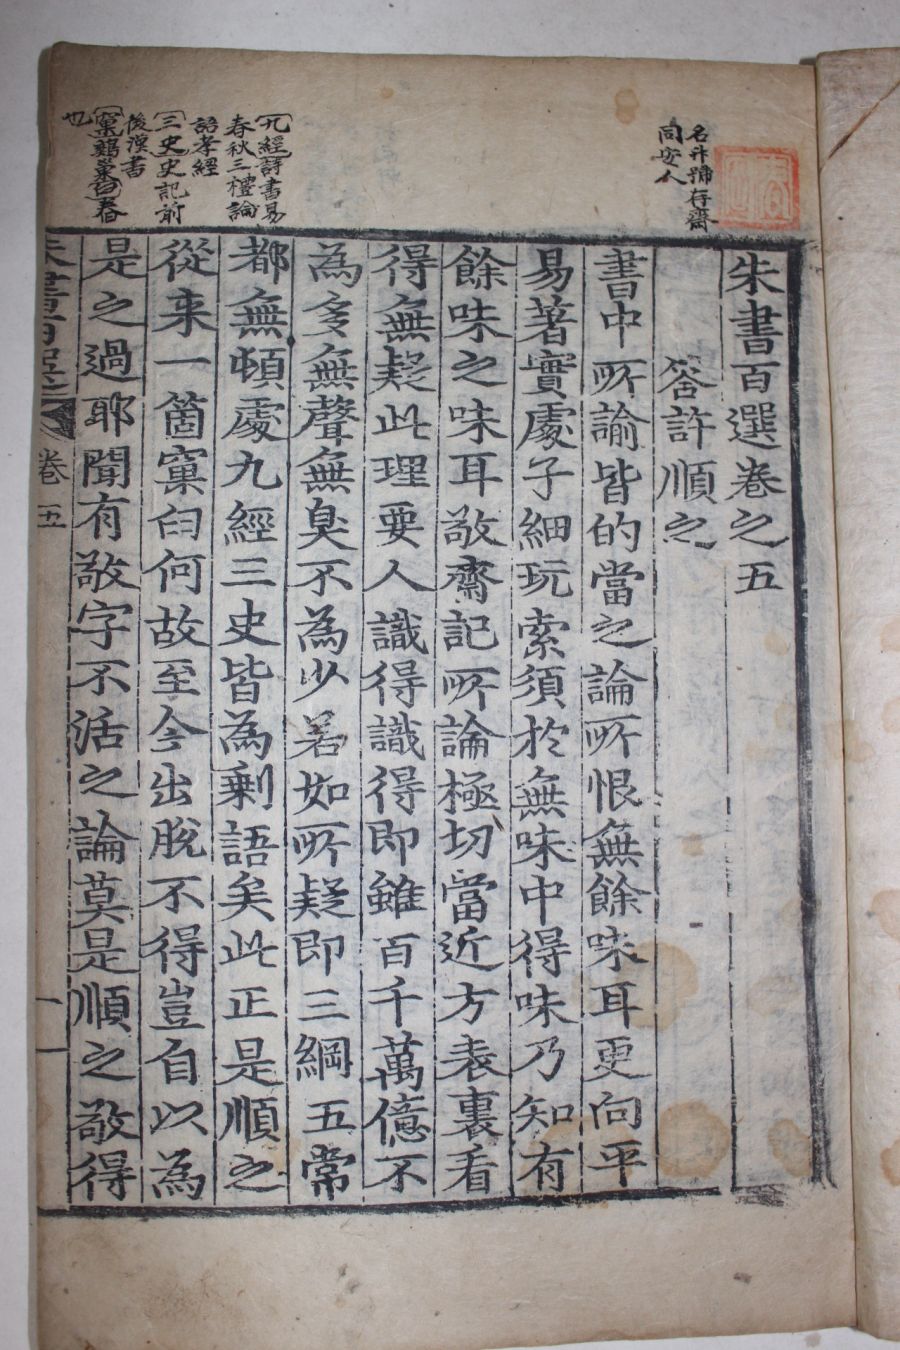 朱書百選卷之五
答許順之
書中所諭皆的當之論所恨無餘味耳更向平
易著實處子細玩索須於無味中得味乃知有
餘味之味耳敬齋記所論極切當近方表裏看
得無疑此理要人識得識得即雖百千萬億不
為多無聲無臭不為少若如所疑即三綱五常
都無頓處九經三史皆為剩語矣此正是順之
從来一箇窠臼何故至今出脫不得豈自以為
是之過耶聞有敬字不活之論莫是順之敬得
名升號存齋
同安人
九經詩書易
春秋三禮論
語孝經
三史史記前
後漢書
也
卷五
一